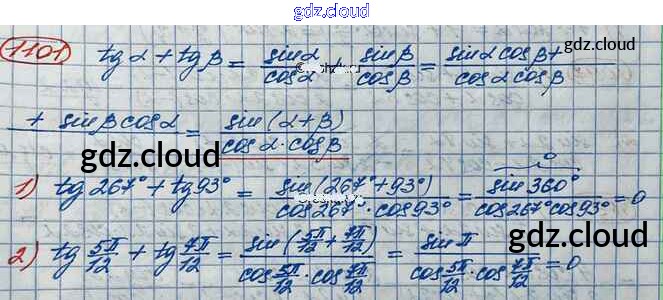 gdz.cloud
1101) tg α + tg β = sin α / cos α + sin β / cos β = sin α cos β + / cos α cos β
gdz.cloud
+ sin β cos α = sin (α + β) / cos α · cos β
gdz.cloud gdz.cloud
0
1) tg 267° + tg 93° = sin (267° + 93°) / cos 267° · cos 93° = sin 360° / cos 267° cos 93° = 0
gdz.cloud gdz.cloud
2) tg 5π/12 + tg 7π/12 = sin (5π/12 + 7π/12) / cos 5π/12 · cos 7π/12 = sin π / cos 5π/12 · cos 7π/12 = 0